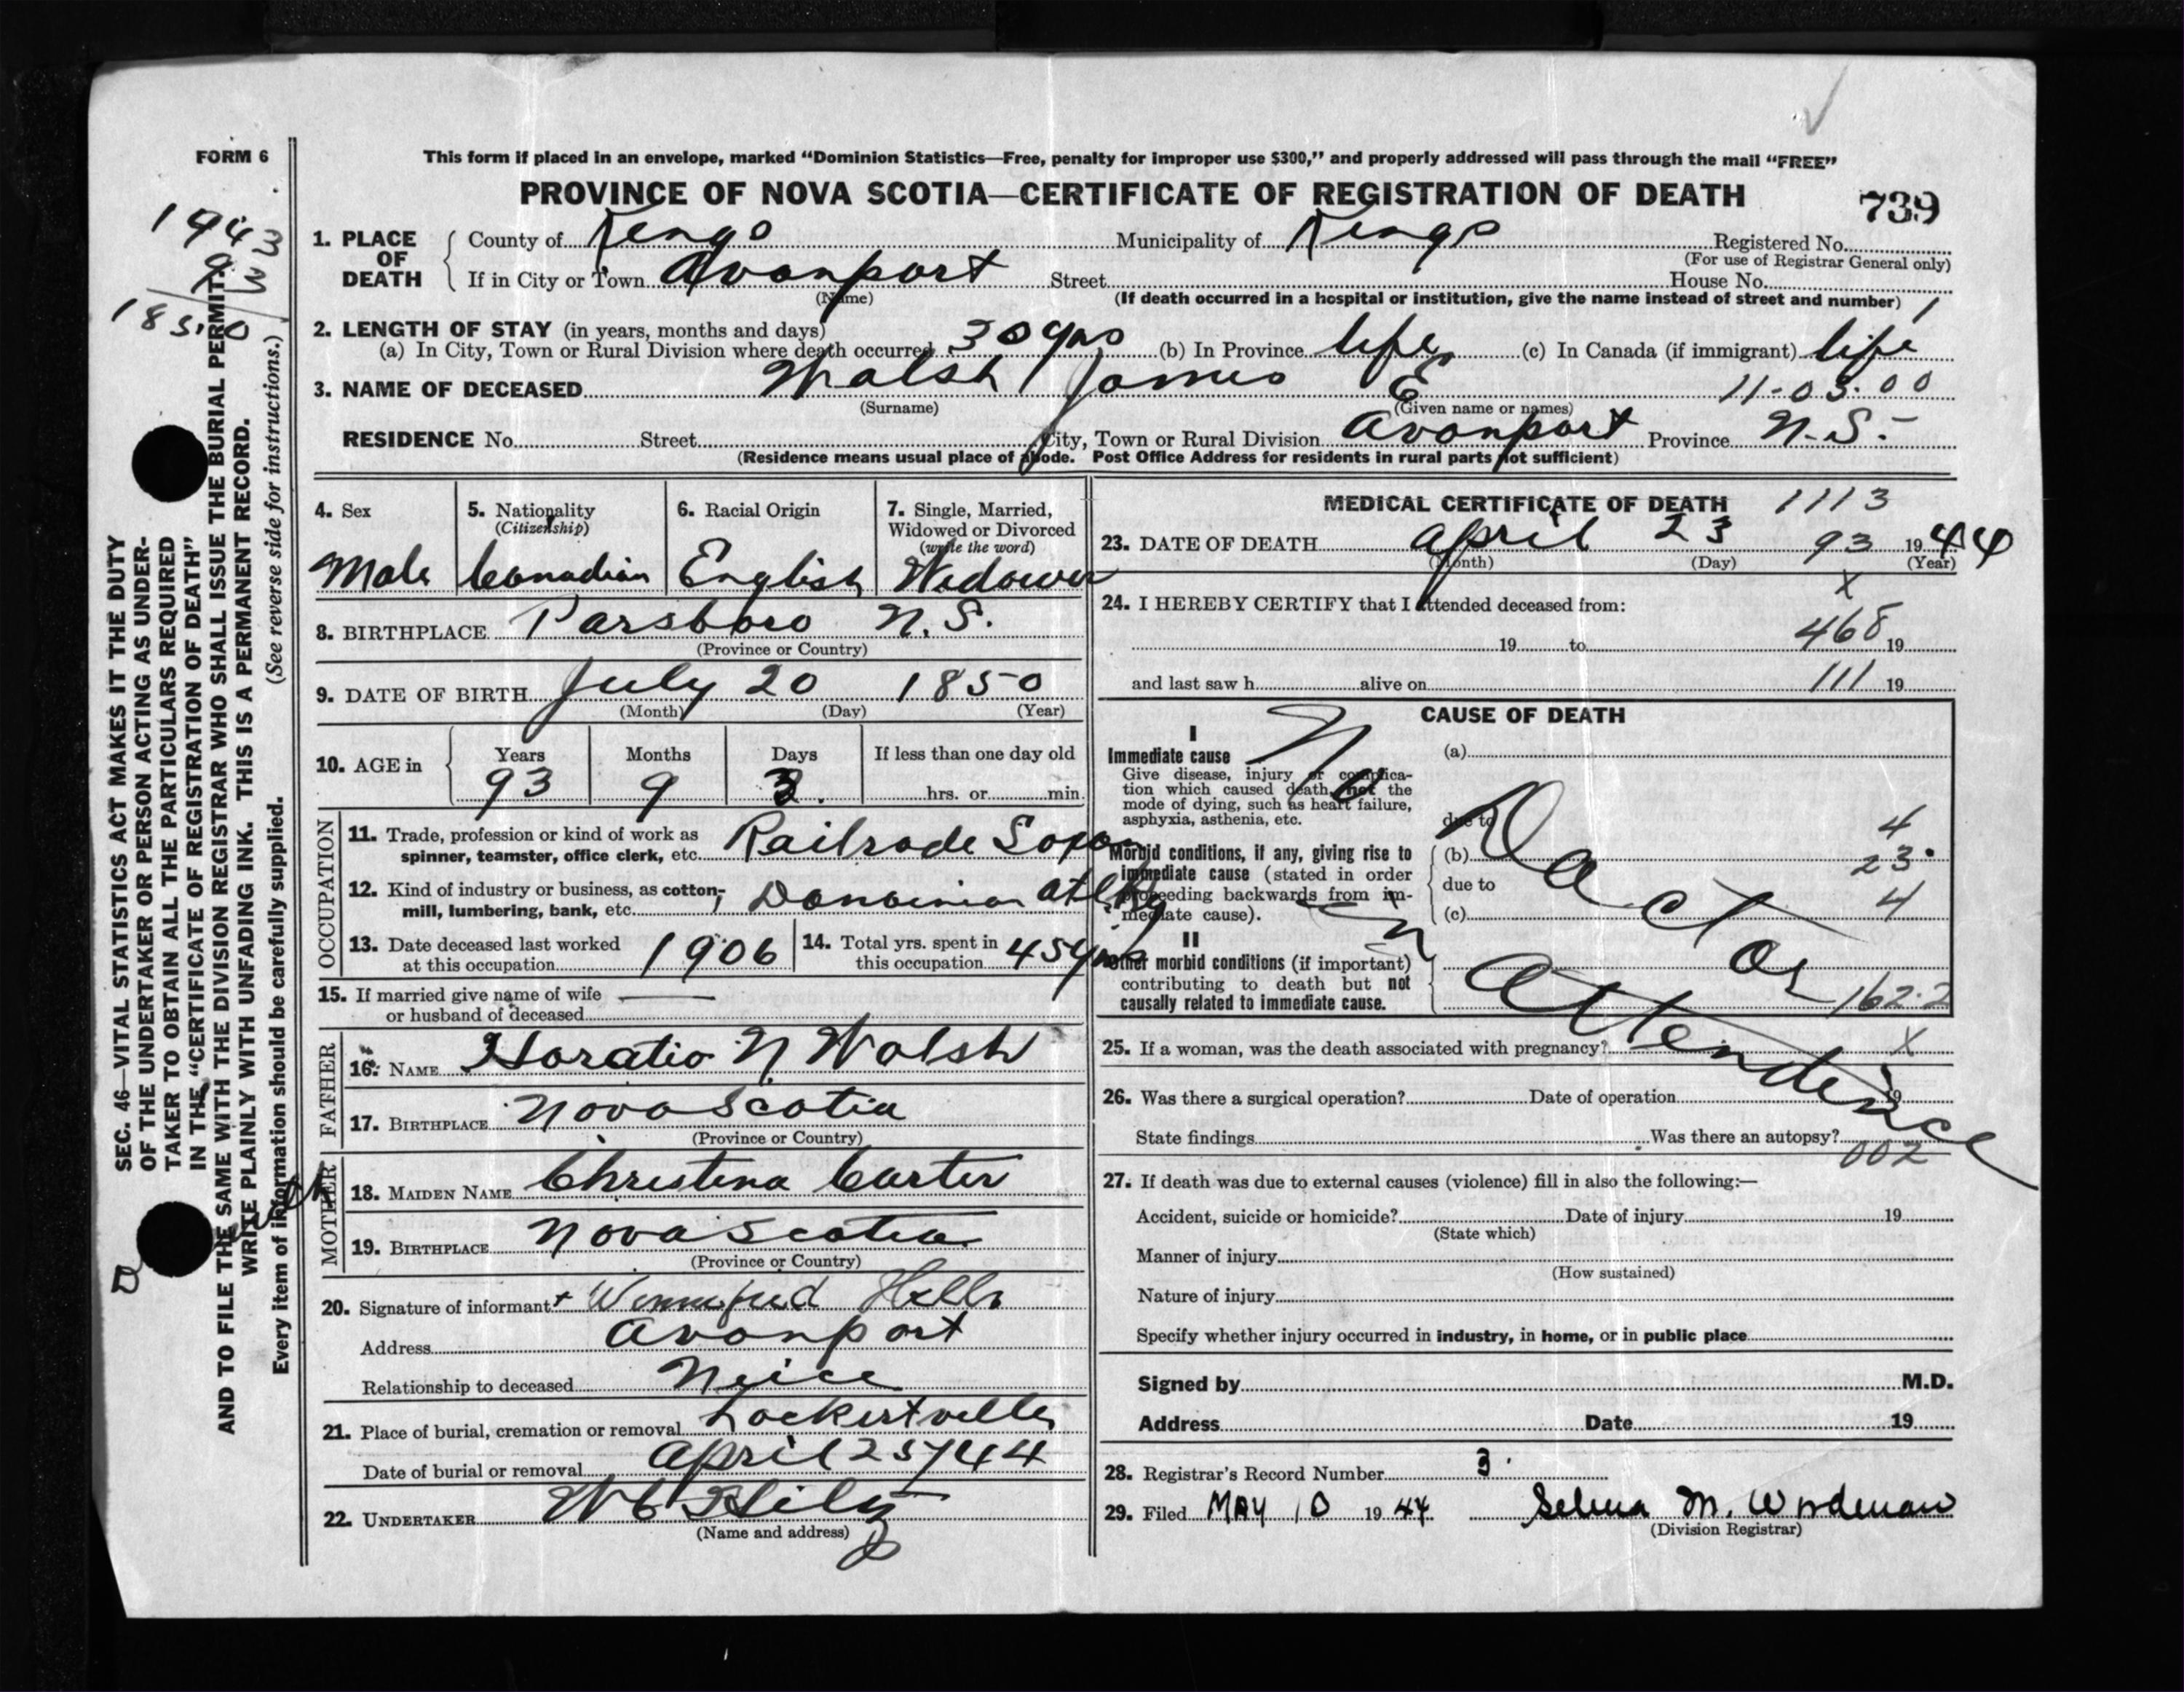 FORM 6
This form if placed in an envelope, marked "Dominion Statistics—Free, penalty for improper use $300," and properly addressed will pass through the mail "FREE"
PROVINCE OF NOVA SCOTIA—CERTIFICATE OF REGISTRATION OF DEATH
739
1. PLACE OF DEATH
County of Kings Municipality of Kings Registered No.
(For use of Registrar General only)
If in City or Town Avonport Street House No.
(Name) (If death occurred in a hospital or institution, give the name instead of street and number)
2. LENGTH OF STAY (in years, months and days)
(a) In City, Town or Rural Division where death occurred 30 yrs (b) In Province life (c) In Canada (if immigrant) life
3. NAME OF DECEASED Walsh James E 11-03-00
(Surname) (Given name or names)
RESIDENCE No. Street City, Town or Rural Division Avonport Province N.S.
(Residence means usual place of abode. Post Office Address for residents in rural parts not sufficient)
4. Sex
Male
5. Nationality
(Citizenship)
Canadian
6. Racial Origin
English
7. Single, Married, Widowed or Divorced
(write the word)
Widower
8. BIRTHPLACE Parsboro N.S.
(Province or Country)
9. DATE OF BIRTH July 20 1850
(Month) (Day) (Year)
10. AGE in Years Months Days If less than one day old
93 9 3 hrs. or min.
OCCUPATION
11. Trade, profession or kind of work as
spinner, teamster, office clerk, etc. Railrode
12. Kind of industry or business, as cotton-
mill, lumbering, bank, etc. Atl Ry
13. Date deceased last worked
at this occupation 1906
14. Total yrs. spent in
this occupation 45 yrs
15. If married give name of wife
or husband of deceased
FATHER
16. NAME Horatio N Walsh
17. BIRTHPLACE Nova Scotia
(Province or Country)
MOTHER
18. MAIDEN NAME Christena Carter
19. BIRTHPLACE Nova Scotia
(Province or Country)
20. Signature of informant Winnifred
Address Avonport
Relationship to deceased Neice
21. Place of burial, cremation or removal Lockertville
Date of burial or removal April 25/44
22. UNDERTAKER W C
(Name and address)
MEDICAL CERTIFICATE OF DEATH 1113
23. DATE OF DEATH April 23 93 1944
(Month) (Day) (Year)
X
24. I HEREBY CERTIFY that I attended deceased from:
19 to 468 19
and last saw h alive on 111 19
CAUSE OF DEATH
I
Immediate cause
Give disease, injury or complication which caused death, not the mode of dying, such as heart failure, asphyxia, asthenia, etc.
(a)
due to
Morbid conditions, if any, giving rise to immediate cause (stated in order proceeding backwards from immediate cause).
(b)
due to
(c)
4
23.
4
II
Other morbid conditions (if important) contributing to death but not causally related to immediate cause.
No Doctor in Attendence
162.2
25. If a woman, was the death associated with pregnancy? X
26. Was there a surgical operation? Date of operation 19
State findings Was there an autopsy?
002
27. If death was due to external causes (violence) fill in also the following:—
Accident, suicide or homicide? Date of injury 19
(State which)
Manner of injury
(How sustained)
Nature of injury
Specify whether injury occurred in industry, in home, or in public place
Signed by M.D.
Address Date 19
28. Registrar's Record Number 3
29. Filed MAY 10 1944 Selma M. Wordman
(Division Registrar)
SEC. 46—VITAL STATISTICS ACT MAKES IT THE DUTY
OF THE UNDERTAKER OR PERSON ACTING AS UNDER-
TAKER TO OBTAIN ALL THE PARTICULARS REQUIRED
IN THE "CERTIFICATE OF REGISTRATION OF DEATH"
AND TO FILE THE SAME WITH THE DIVISION REGISTRAR WHO SHALL ISSUE THE BURIAL PERMIT.
WRITE PLAINLY WITH UNFADING INK. THIS IS A PERMANENT RECORD.
Every item of information should be carefully supplied. (See reverse side for instructions.)